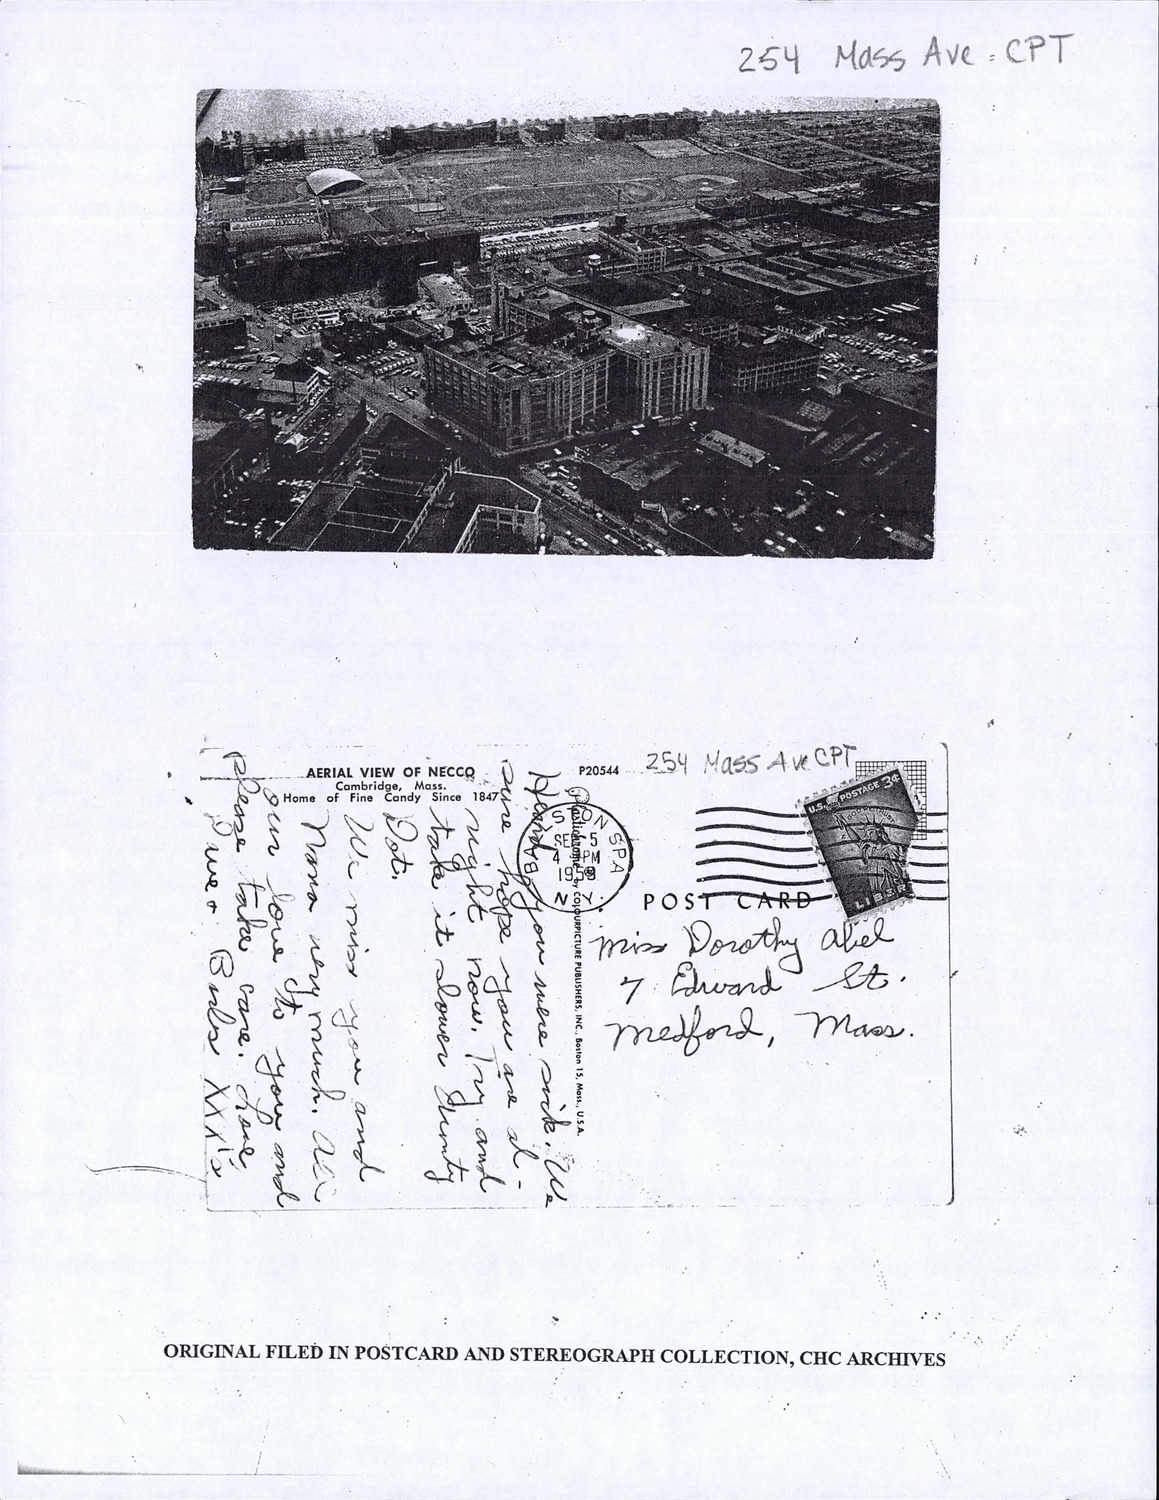 254 Mass Ave - CPT
254 Mass Ave CPT
AERIAL VIEW OF NECCO
Cambridge, Mass.
Home of Fine Candy Since 1847
P20544
Heard you were sick. We
sure hope you are al-
right now. Try and
take it slower Aunty
Dot.
We miss you and
Nana very much. All
our love to you and
please take care. Love
XXX's
Plastichrome ® by COLOURPICTURE PUBLISHERS, INC., Boston 15, Mass., U.S.A.
BALLSTON SPA
SEP 5
4 PM
N.Y.
U.S. POSTAGE 3¢
LIBERTY
POST CARD
Miss Dorothy Abel
7 Edward St.
Medford, Mass.
ORIGINAL FILED IN POSTCARD AND STEREOGRAPH COLLECTION, CHC ARCHIVES